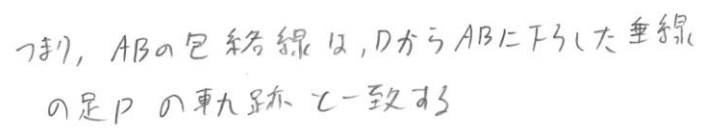 つまり, ABの包絡線は, DからABに下ろした垂線
の足Pの軌跡と一致する